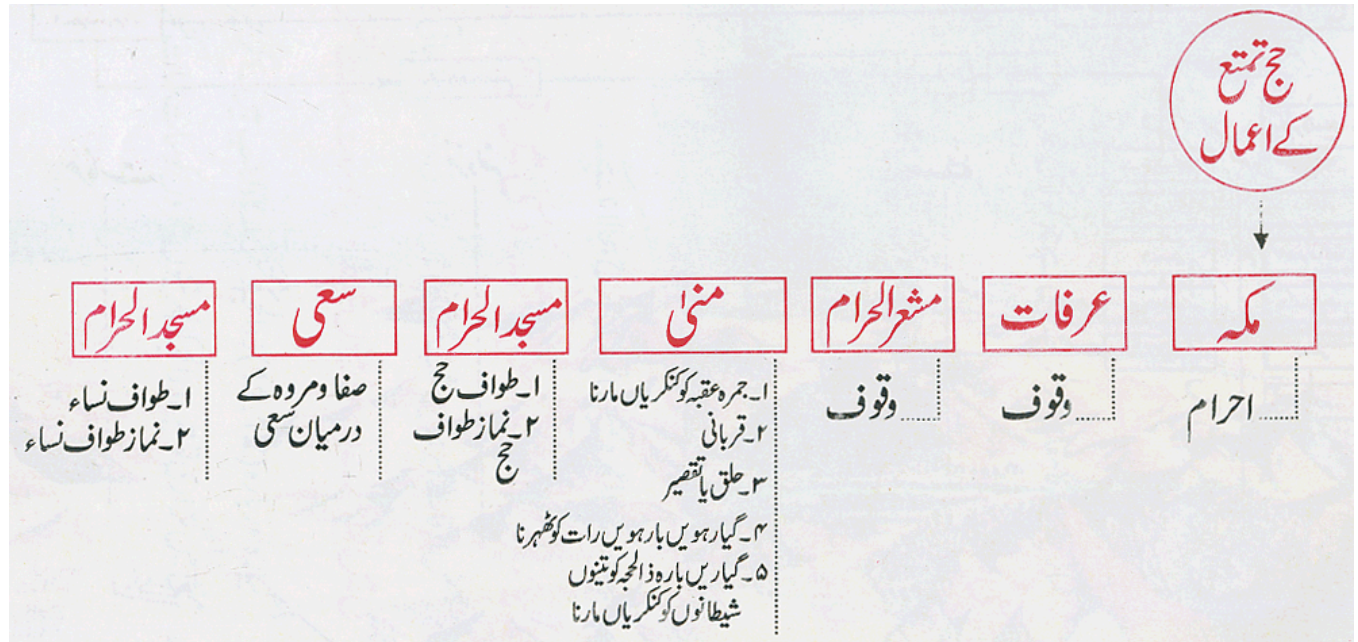 حج تمتع
کے اعمال
مکہ
احرام
عرفات
وقوف
مشعر الحرام
وقوف
منیٰ
۱۔ جمرہ عقبہ کو کنکریاں مارنا
۲۔ قربانی
۳۔ حلق یا تقصیر
۴۔ گیارہویں بارہویں رات کو ٹھہرنا
۵۔ گیاریں بارہ ذالحجہ کو تینوں
شیطانوں کو کنکریاں مارنا
مسجد الحرام
۱۔ طواف حج
۲۔ نماز طواف
حج
سعی
صفا و مروہ کے
درمیان سعی
مسجد الحرام
۱۔ طواف نساء
۲۔ نماز طواف نساء